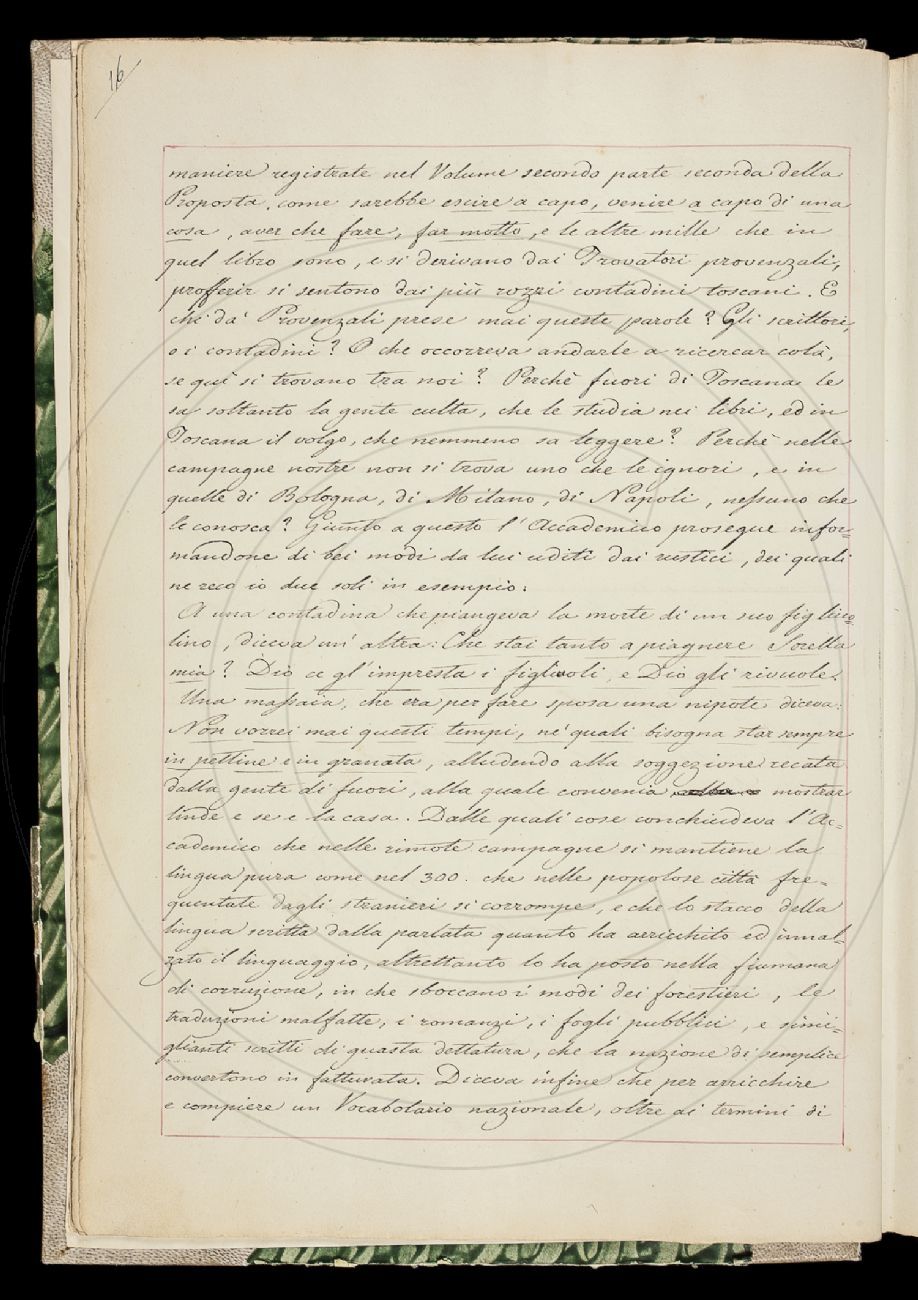 16
maniere registrate nel Volume secondo parte seconda della
Proposta, come sarebbe escire a capo, venire a capo di una
cosa, aver che fare, far motto, e le altre mille che in
quel libro sono, e si derivano dai Trovatori provenzali,
profferir si sentono dai più rozzi contadini toscani. E
chi da' Provenzali prese mai queste parole? Gli scrittori,
o i contadini? O che occorreva andarle a ricercar colà,
se quì si trovano tra noi? Perchè fuori di Toscana le
sa soltanto la gente culta, che le studia nei libri, ed in
Toscana il volgo, che nemmeno sa leggere? Perchè nelle
campagne nostre non si trova uno che le ignori, e in
quelle di Bologna, di Milano, di Napoli, nessuno che
le conosca? Giunto a questo l'Accademico prosegue infor=
mandone di bei modi da lui uditi dai rustici, dei quali
ne reco io due soli in esempio:
A una contadina che piangeva la morte di un suo figliuo=
lino, diceva un'altra: Che stai tanto a piagnere Sorella
mia? Dio ce gl'impresta i figliuoli, e Dio gli rivuole.
Una massaia, che era per fare sposa una nipote diceva:
Non vorrei mai questi tempi, ne' quali bisogna star sempre
in pettine e in granata, alludendo alla soggezione recata
dalla gente di fuori, alla quale convenia mostrar
linde e se e la casa. Dalle quali cose conchiudeva l'Ac=
cademico che nelle rimote campagne si mantiene la
lingua pura come nel 300. che nelle popolose città fre=
quentate dagli stranieri si corrompe, e che lo stacco della
lingua scritta dalla parlata quanto ha arricchito ed innal=
zato il linguaggio, altrettanto lo ha posto nella fiumana
di corruzione, in che sboccano i modi dei forestieri, le
traduzioni malfatte, i romanzi, i fogli pubblici, e simi=
glianti scritti di guasta dettatura, che la nazione di semplice
convertono in fatturata. Diceva infine che per arricchire
e compiere un Vocabolario nazionale, oltre ai termini di